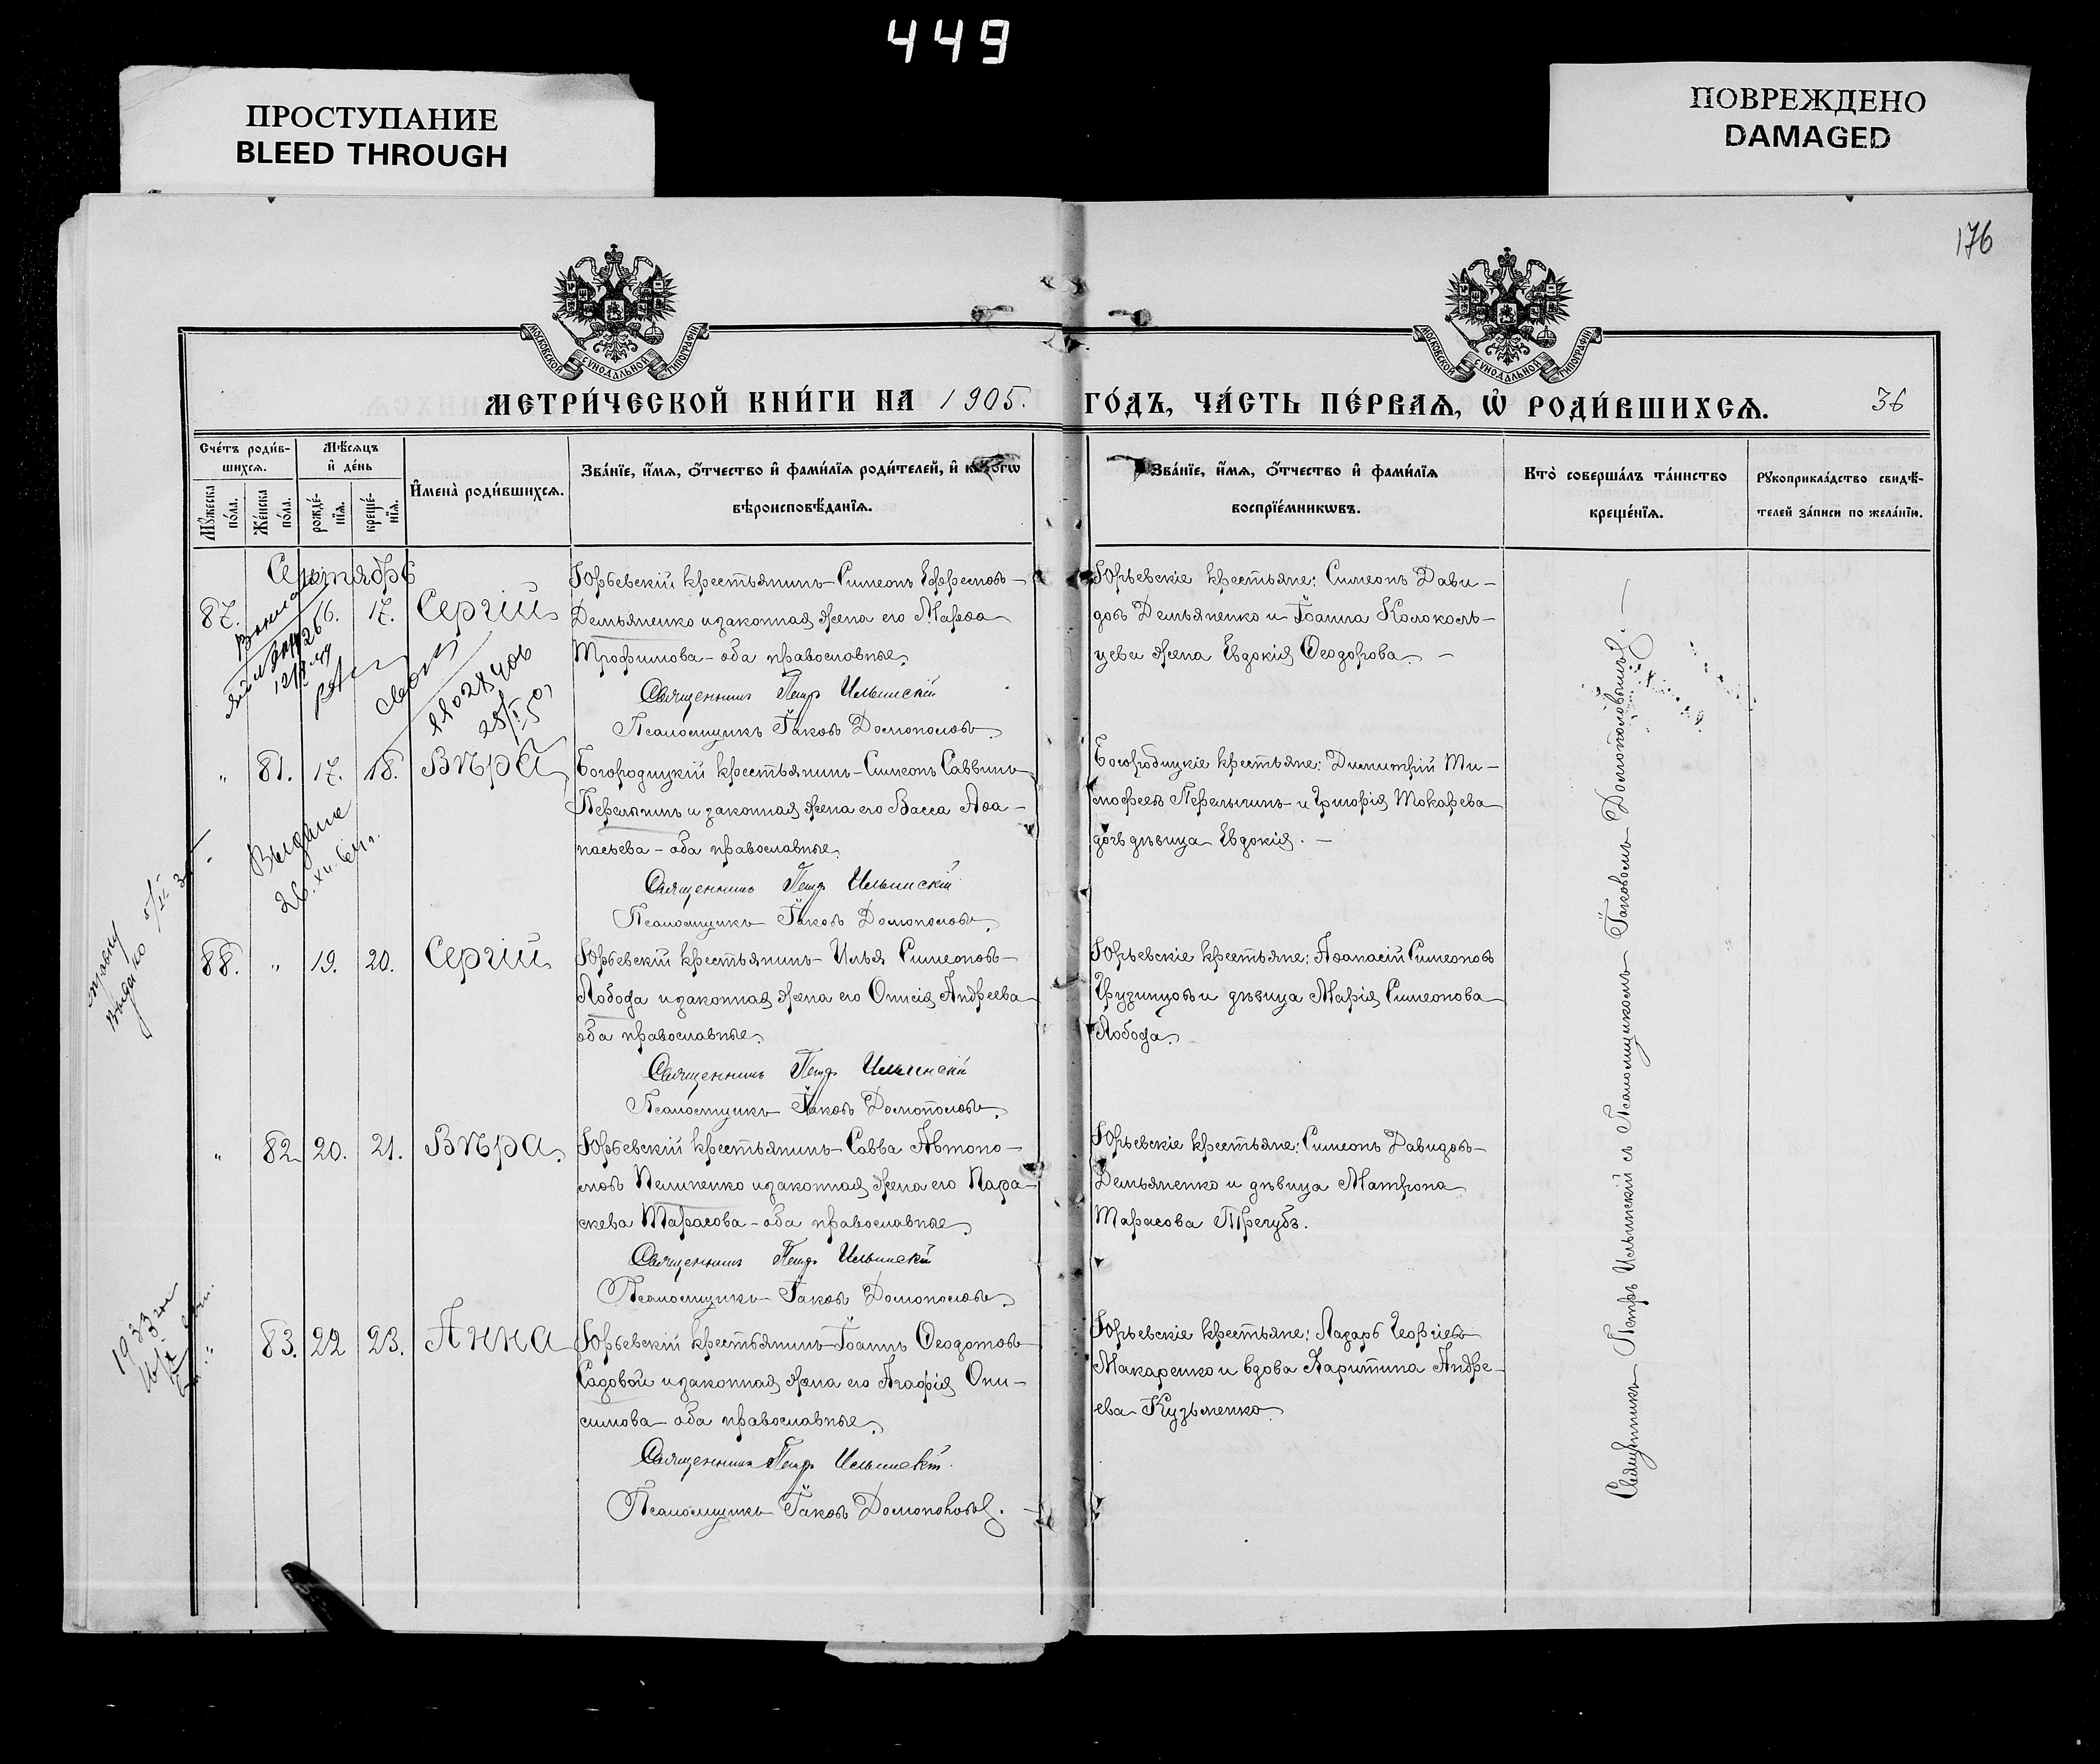 449
ПРОСТУПАНИЕ
BLEED THROUGH
ПОВРЕЖДЕНО
DAMAGED
176
МОСКОВСКОЙ СУНОДАЛЬНОЙ ТИПОГРАФІИ
МОСКОВСКОЙ СУНОДАЛЬНОЙ ТИПОГРАФІИ
МЕТРИ́ЧЕСКОЙ КНИ́ГИ НА 1905.
ГО́ДЪ, ЧА́СТЬ ПЕ́РВАЯ, Ѡ҆ РОДИ́ВШИХСѦ.
36
Сче́тъ роди́в-
шихся.
Мѣ́сяцъ
и҆ де́нь
Мꙋ́жеска
по́ла.
Же́нска
по́ла.
рожде́-
нїя.
креще́-
нїя.
И҆мена̀ роди́вшихсѧ.
Зва́нїе, и҆́мѧ, ѻ҆́тчество и҆ фами́лїѧ роди́телей, и҆
вѣроисповѣ́данїѧ.
Зва́нїе, и҆́мѧ, ѻ҆́тчество и҆ фами́лїѧ
воспрїе́мникѡвъ.
Кто̀ соверша́лъ та́инство
креще́нїѧ.
Рꙋкоприкла́дство свидѣ́-
телей за́писи по жела́нїю.
Сентябрь
87.
16.
17.
Сергій
Юрьевскій крестьянинъ Симеонъ Ефремовъ
Демьяненко и законная жена его Марѳа
Трофимова - оба православные.
Священникъ Петръ Ильинскій
Псаломщикъ Іаковъ Домополовъ.
Юрьевскіе крестьяне: Симеонъ Дави-
довъ Демьяненко и Іоанна Колоколь-
цева жена Евдокія Ѳеодорова. —
" 81. 17. 18. Вѣра
Богородицкій крестьянинъ Симеонъ Саввинъ
и законная жена его Васса Аѳа-
насьева - оба православные.
Священникъ Петръ Ильинскій
Псаломщикъ Іаковъ Домополовъ.
Богородицкіе крестьяне: Димитрій Ти-
мофеевъ Перелыгинъ и Григорія Токарева
дочь дѣвица Евдокія. —
Выдана
26.XII.64 г.
88. " 19. 20. Сергій
Юрьевскій крестьянинъ Илья Симеоновъ
Лобода и законная жена его Онисія Андреева
оба православные.
Священникъ Петръ Ильинскій
Псаломщикъ Іаковъ Домополовъ.
Юрьевскіе крестьяне: Аѳанасій Симеоновъ
Грузинцовъ и дѣвица Марія Симеонова
Лобода.
" 82 20. 21. Вѣра.
Юрьевскій крестьянинъ Савва Автоно-
мовъ Пелипенко и законная жена его Пара-
скева Тарасова - оба православные.
Священникъ Петръ Ильинскій
Псаломщикъ Іаковъ Домополовъ.
Юрьевскіе крестьяне: Симеонъ Давидовъ
Демьяненко и дѣвица Матрона
Тарасова Трегубъ.
1933
" 83. 22 23. Анна
Юрьевскій крестьянинъ Іоаннъ Ѳеодотовъ
Садовой и законная жена его Агафія Они-
симова - оба православные.
Священникъ Петръ Ильинскій.
Псаломщикъ Іаковъ Домополовъ.
Юрьевскіе крестьяне: Лазарь Георгіевъ
Макаренко и вдова Харитина Андре-
ева Кузьменко.
Священникъ Петръ Ильинскій съ Псаломщикомъ Іаковомъ Домополовымъ. —